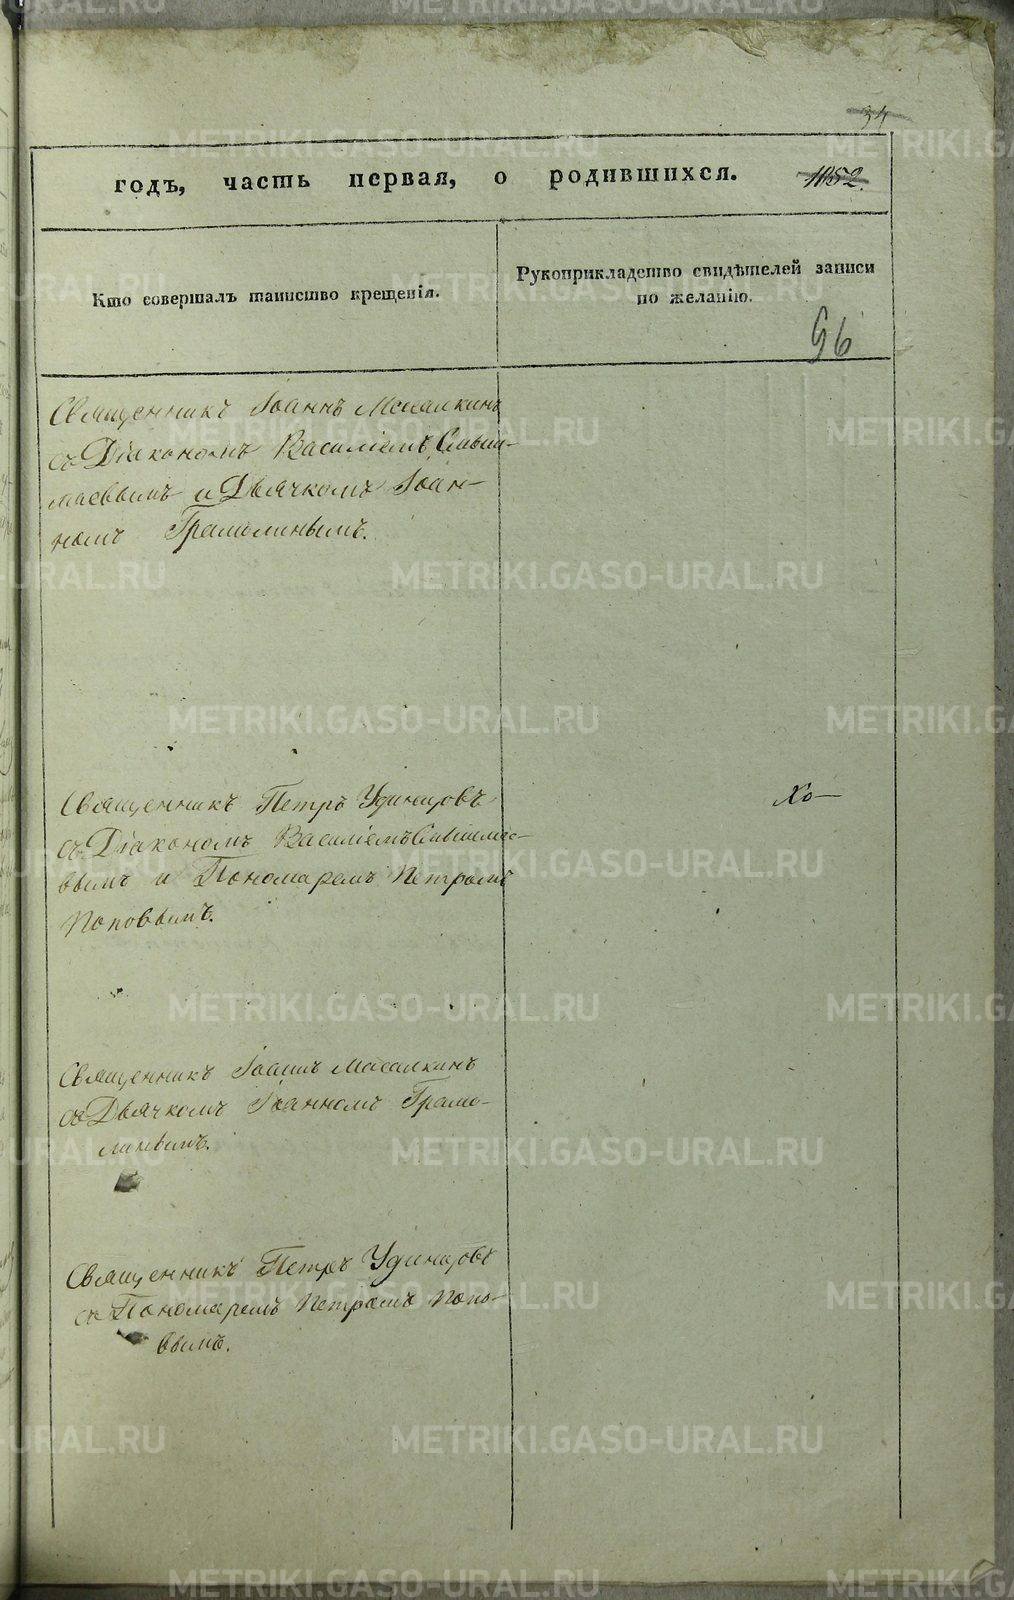 34
годъ, часть первая, о родившихся. 1852.
Кто совершалъ таинство крещенія.
Рукоприкладство свидѣтелей записи
по желанію.
96
Священникъ Іоаннъ Масалкинъ
съ Діакономъ Василіемъ
и Дьячкомъ Іоан-
номъ Грамолинымъ.
Священникъ Петръ Удинцовъ
съ Діакономъ Василіемъ
вымъ и Пономаремъ Петромъ
Поповымъ.
Священникъ Іоаннъ Масалкинъ
съ Дьячкомъ Іоанномъ Грамо-
линымъ.
Священникъ Петръ Удинцовъ
съ Пономаремъ Петромъ Попо-
вымъ.
METRIKI.GASO-URAL.RU